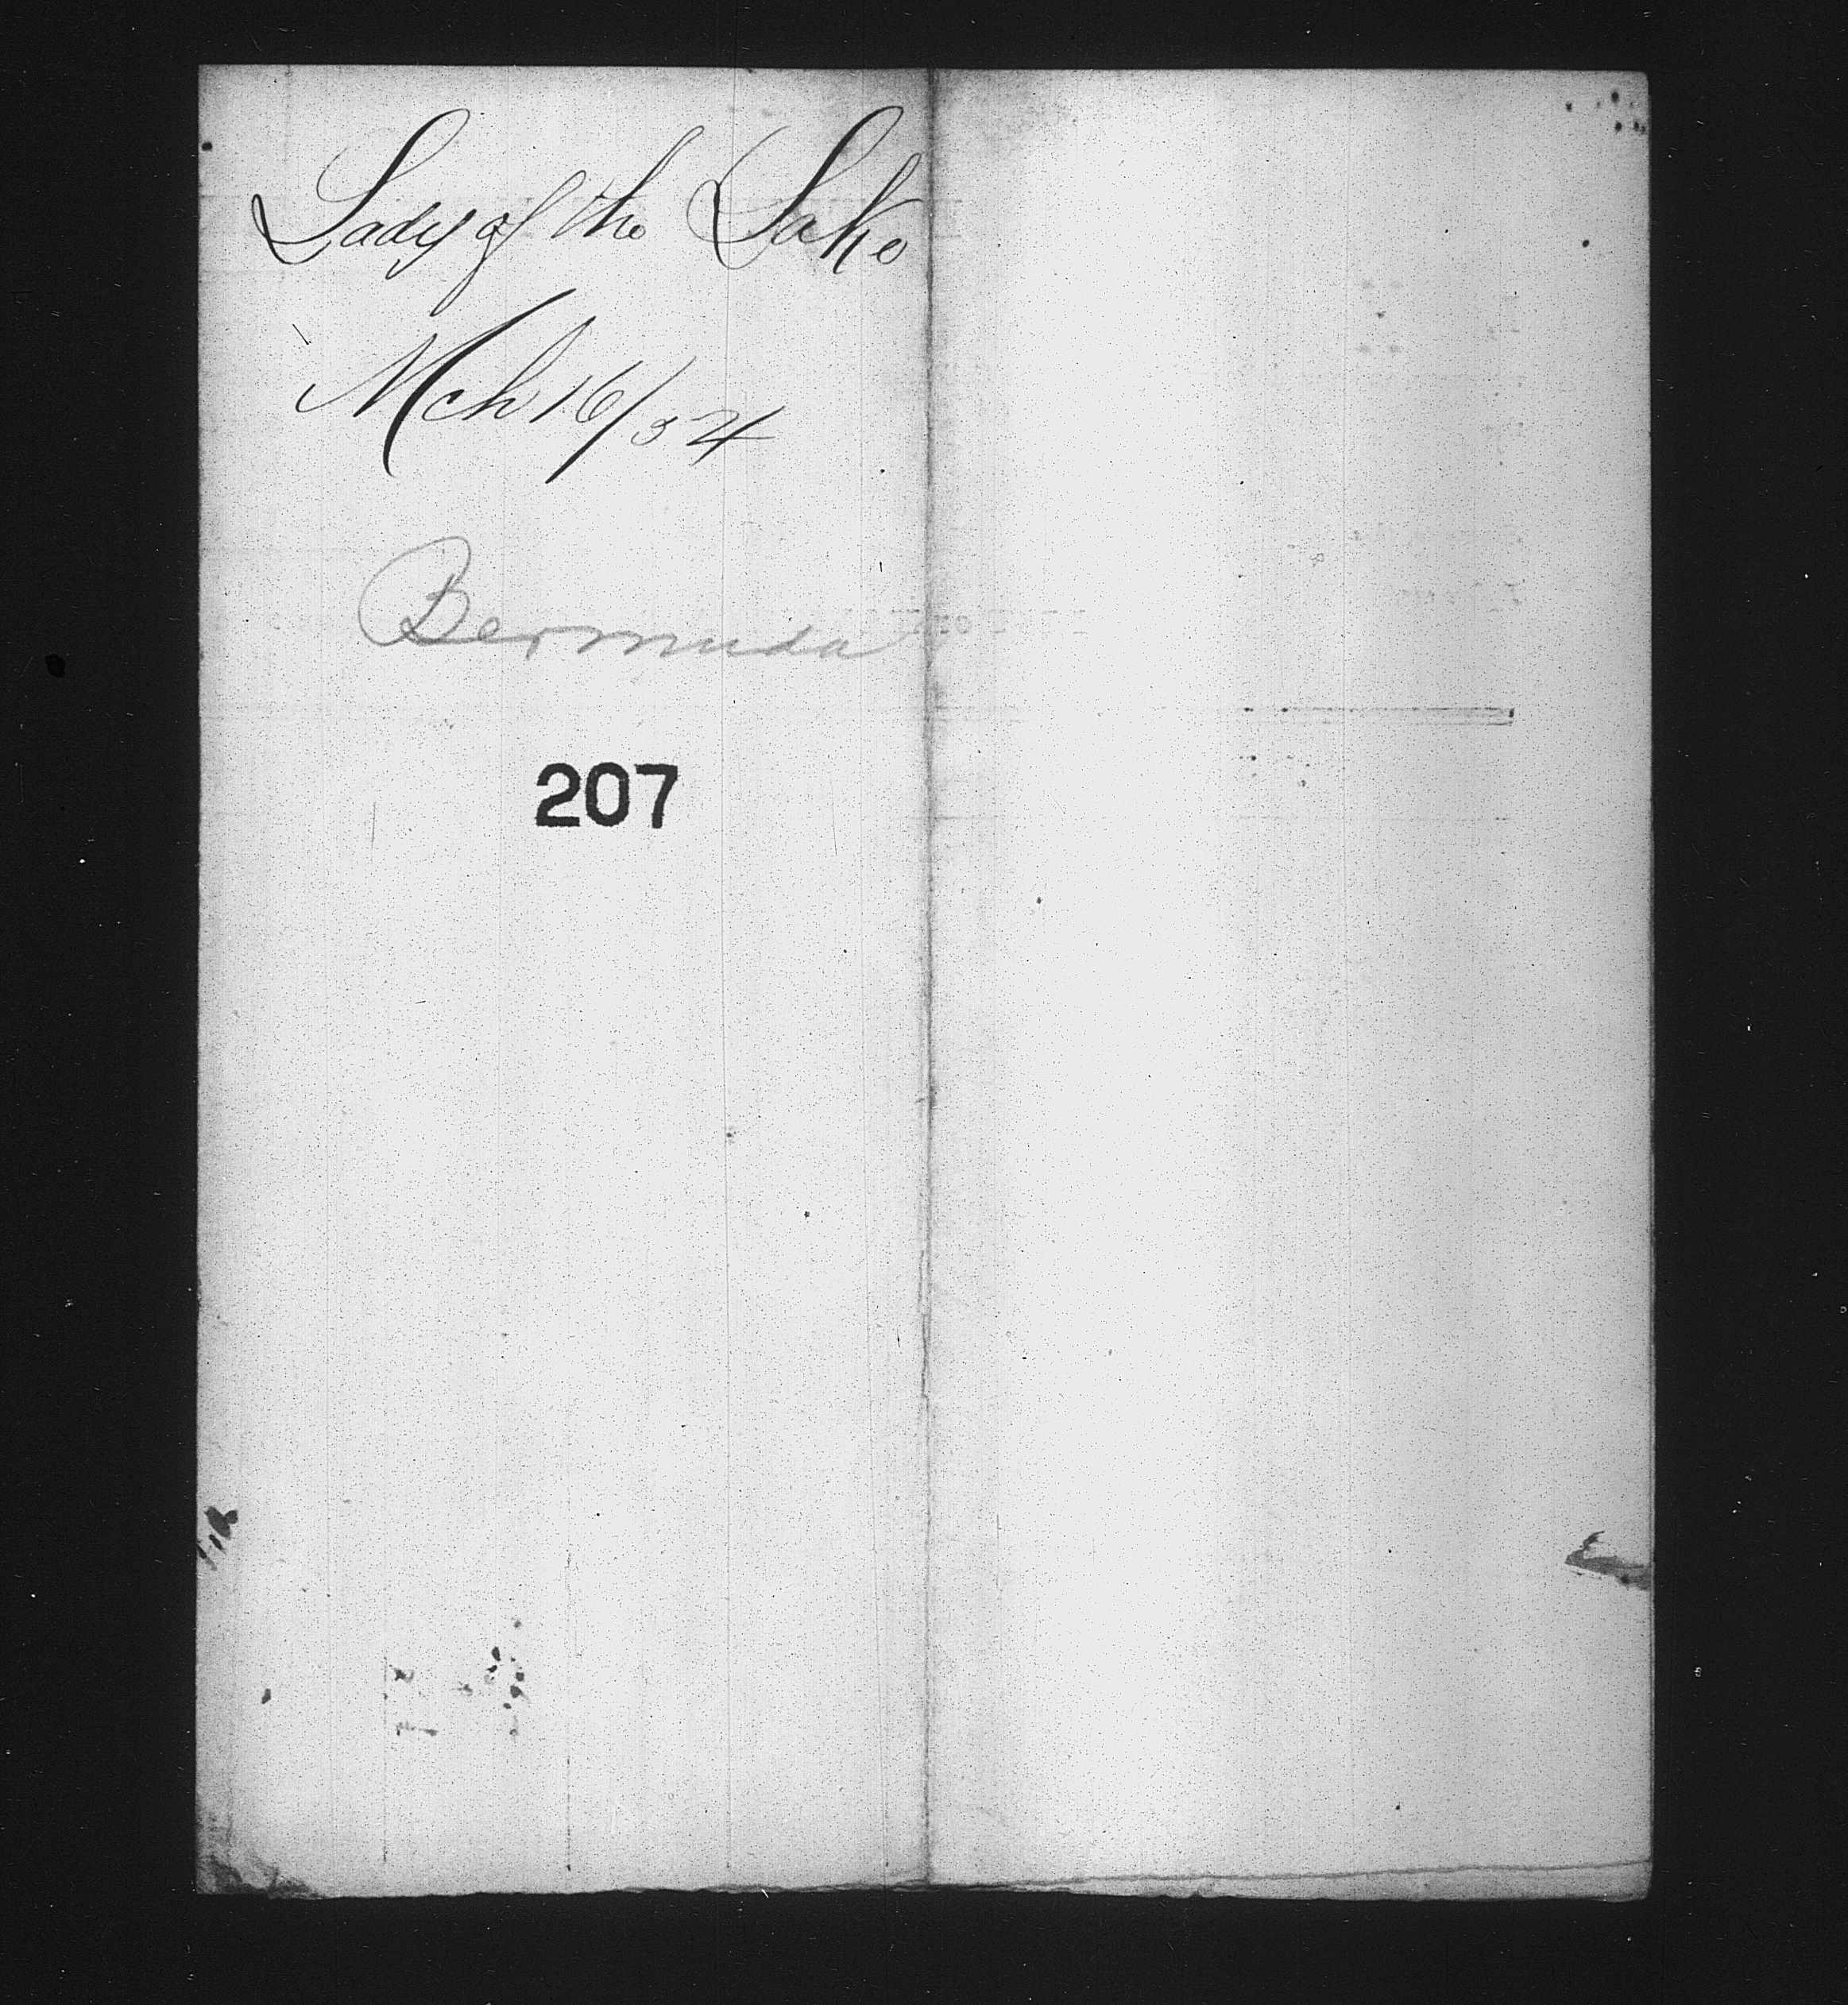 Lady of the Lake
Mch 16/54
Bermuda
207